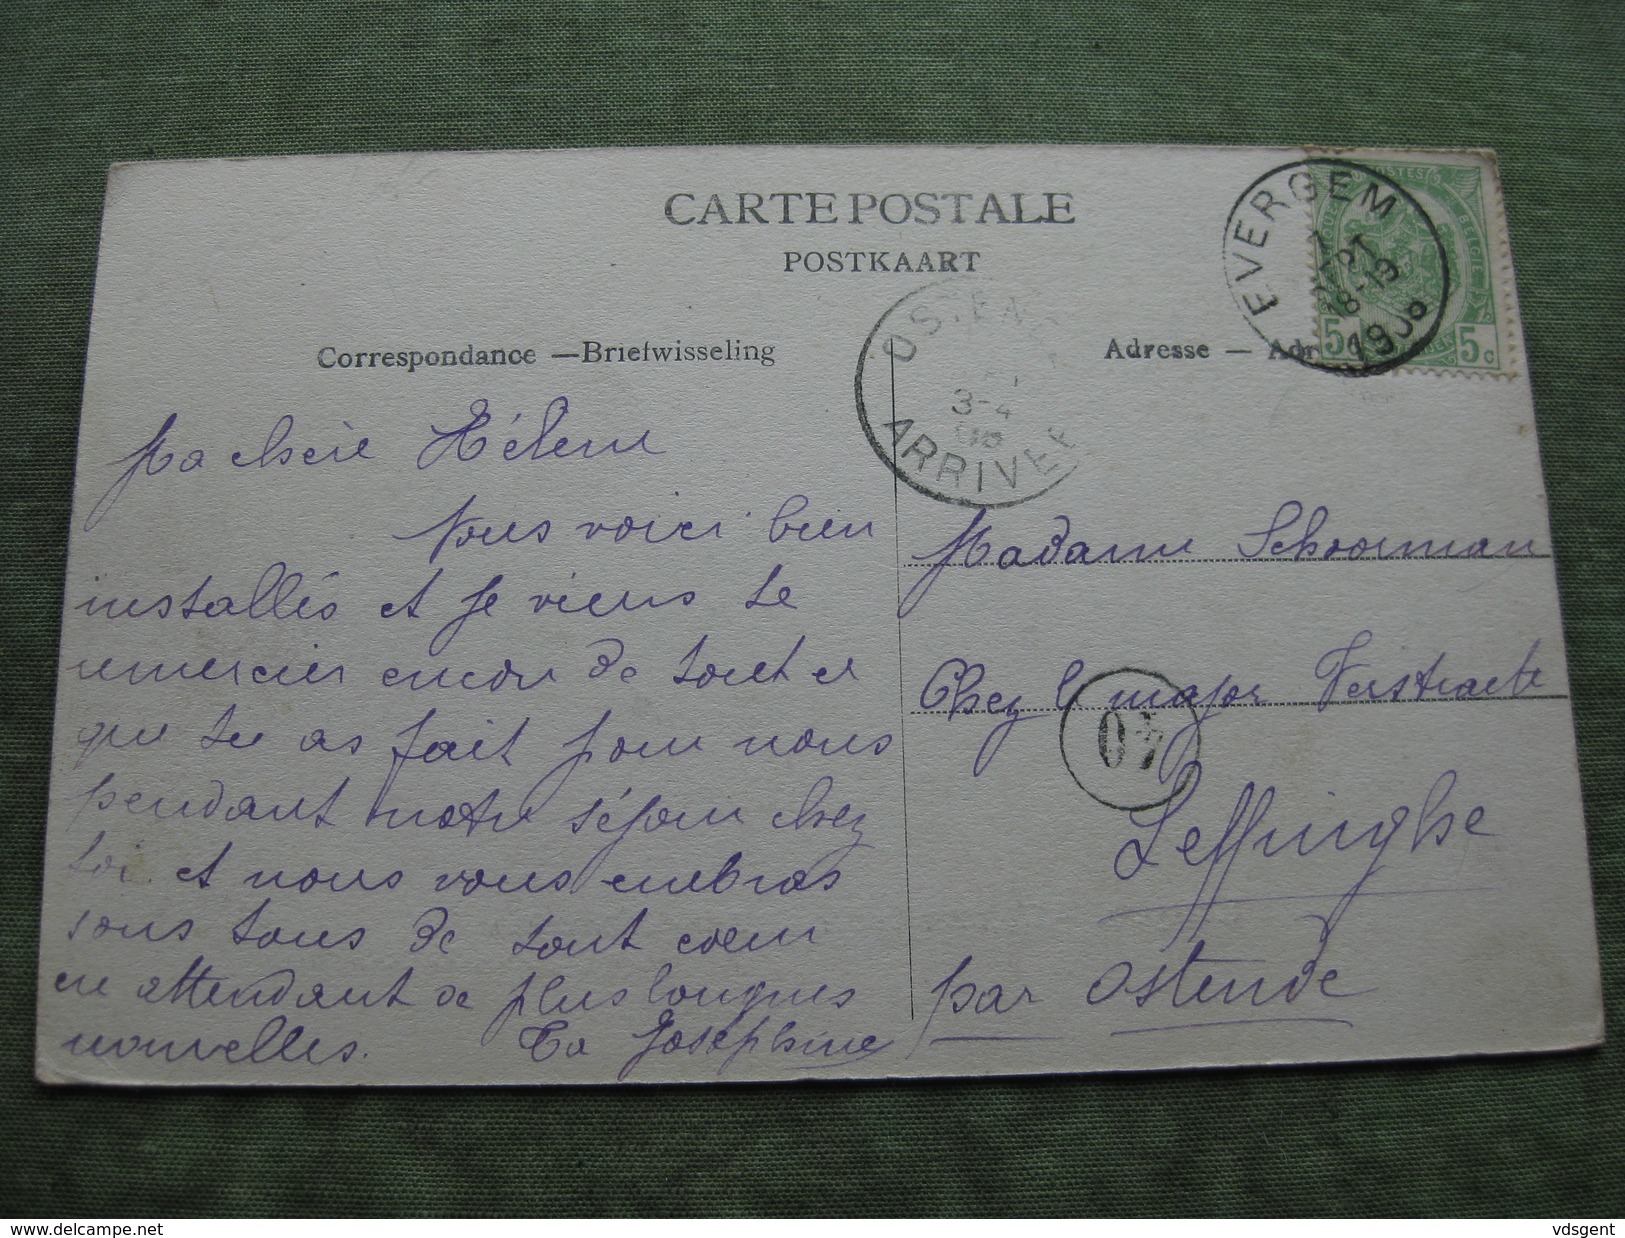 CARTE POSTALE
POSTKAART
Correspondance — Briefwisseling
Adresse — Adr
EVERGEM
18-19
1908
5 5c
OSTEN
3-4
ARRIVEE
Ma chère Hélène
Nous voici bien
installés et je viens te
remercier encore de tout ce
que tu as fait pour nous
pendant notre séjour chez
toi et nous vous embras
sons tous de tout coeur
en attendant de plus longues
nouvelles. Ta Joséphine
Madame Schoorman
Chez le major Verstraete
Leffinghe
par Ostende
delcampe.net
vdsgent